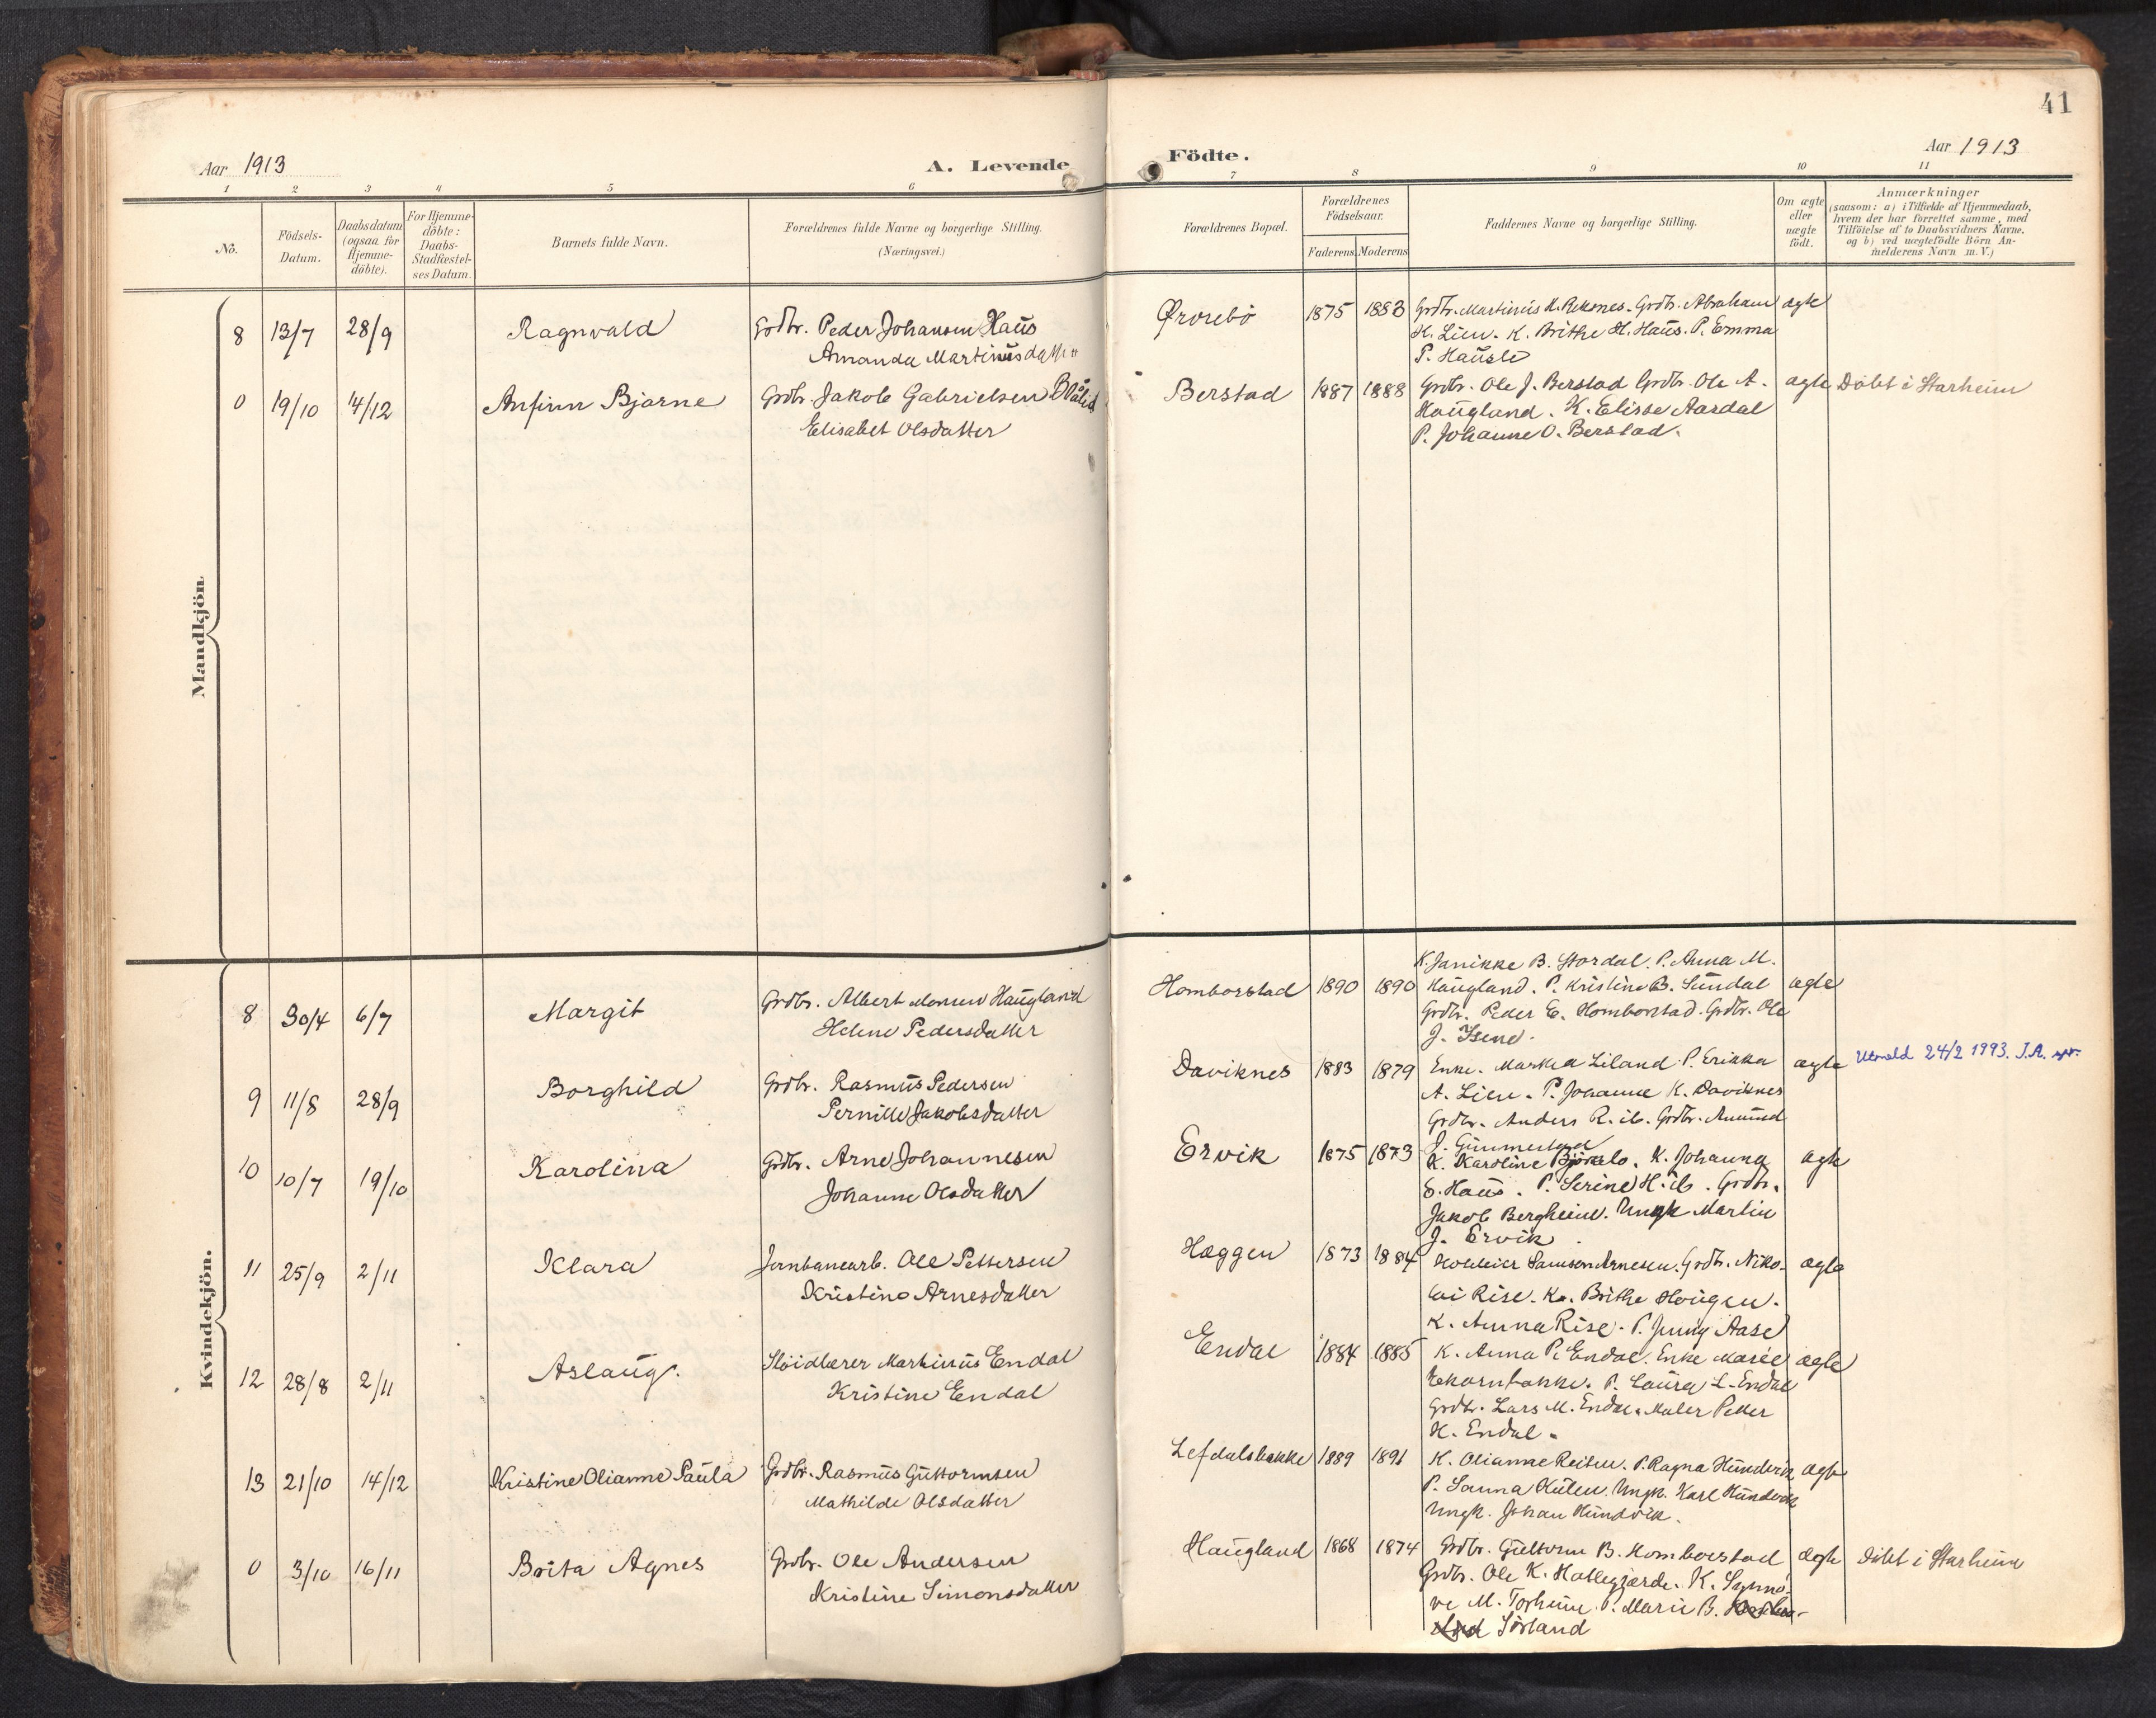 41
Aar 1913
A. Levende
Födte.
Aar 1913
1 2 3 4 5 6 7 8 9 10 11
No.
Födsels-
Datum.
Daabsdatum
(ogsaa for
Hjemme-
döbte).
For Hjemme-
döbte:
Daabs-
Stadfæstel-
ses Datum.
Barnets fulde Navn.
Forældrenes fulde Navne og borgerlige Stilling.
(Næringsvei.)
Forældrenes Bopæl.
Forældrenes
Födselsaar.
Faderens Moderens
Faddernes Navne og borgerlige Stilling.
Om ægte
eller
uægte
födt.
Anmærkninger
(saasom: a) i Tilfælde af Hjemmedaab,
hvem der har forrettet samme, med
Tilföielse af to Daabsvidners Navne.
og b) ved uægtefödte Börn An-
melderens Navn m. V.)
Mandkjön
8 13/7 28/9 Ragnvald Grdbr. Peder Johansen Haus
Amanda Martinusdatter
Ørorebö 1875 1883 Grdbr. Martinus M. Reksnes. Grdbr. Abraham ægte
H. Lien. K. Brithe H. Haus. P. Emma
P. Hausle
0 19/10 14/12 Anfinn Bjarne Grdbr. Jakob Gabrielsen Blålid
Elisabet Olsdatter
Berstad 1887 1888 Grdbr. Ole J. Berstad Grdbr. Ole A. ægte Döbt i Starheim
Haugland. K. Elisse Aardal
P. Johanne O. Berstad.
Kvindekjön.
8 30/4 6/7 Margit Grdbr. Albert Monsen Haugland
Helene Pedersdatter
K. Janikke B. Stordal. P. Anna M.
Homborstad 1890 1890 Haugland. P. Kristine B. Sundal ægte
Grdbr. Peder E. Homborstad. Grdbr. Ole
J. Isene.
9 11/8 28/9 Borghild Grdbr. Rasmus Pedersen
Pernille Jakobsdatter
Daviknes 1883 1879 Enke. Marthea Liland. P. Erikka ægte Utmeld 24/2 1993. J.A. spr.
A. Lien. P. Johanne K. Daviknes
Grdbr. Anders R. ib. Grdbr. Amund
J. Gimmestad
10 10/7 19/10 Karolina Grdbr. Arne Johannesen
Johanne Olsdatter
Ervik 1875 1873 K. Karoline Bjørlo. K. Johanna ægte
S. Haus. P. Serine H. ib. Grdbr.
Jakob Bergheim. Ungk. Martin
J. Ervik.
11 25/9 2/11 Klara Jernbanearb. Ole Pettersen
Kristine Arnesdatter
Hæggen 1873 1884 Samson Arnesen. Grdbr. Niko- ægte
lai Rise. K. Brithe Hougen.
K. Anna Rise. P. Jenny Aase
12 28/8 2/11 Aslaug. Slöidlærer Markinus Endal
Kristine Endal
Endal 1884 1885 K. Anna P. Endal. Enke Marie ægte
Ekornbakke. P. Laura L. Endal
Grdbr. Lars M. Endal. Maler Petter
K. Endal.
13 21/10 14/12 Kristine Olianne Paula Grdbr. Rasmus Guttormsen
Mathilde Olsdatter
Lefdalsbakke 1889 1891 K. Olianne Reiten. P. Ragna Hundvik ægte
P. Sanna Kulen. Ungk. Karl Hundvik
Ungk. Johan Hundvik.
0 3/10 16/11 Brita Agnes Grdbr. Ole Andersen
Kristine Simonsdatter
Haugland 1868 1874 Grdbr. Guttorm B. Homborstad ægte Döbt i Starheim
Grdbr. Ole K. Hallegjærde. K. Synnö-
ve M. Torheim. P. Marie B.
Sörland